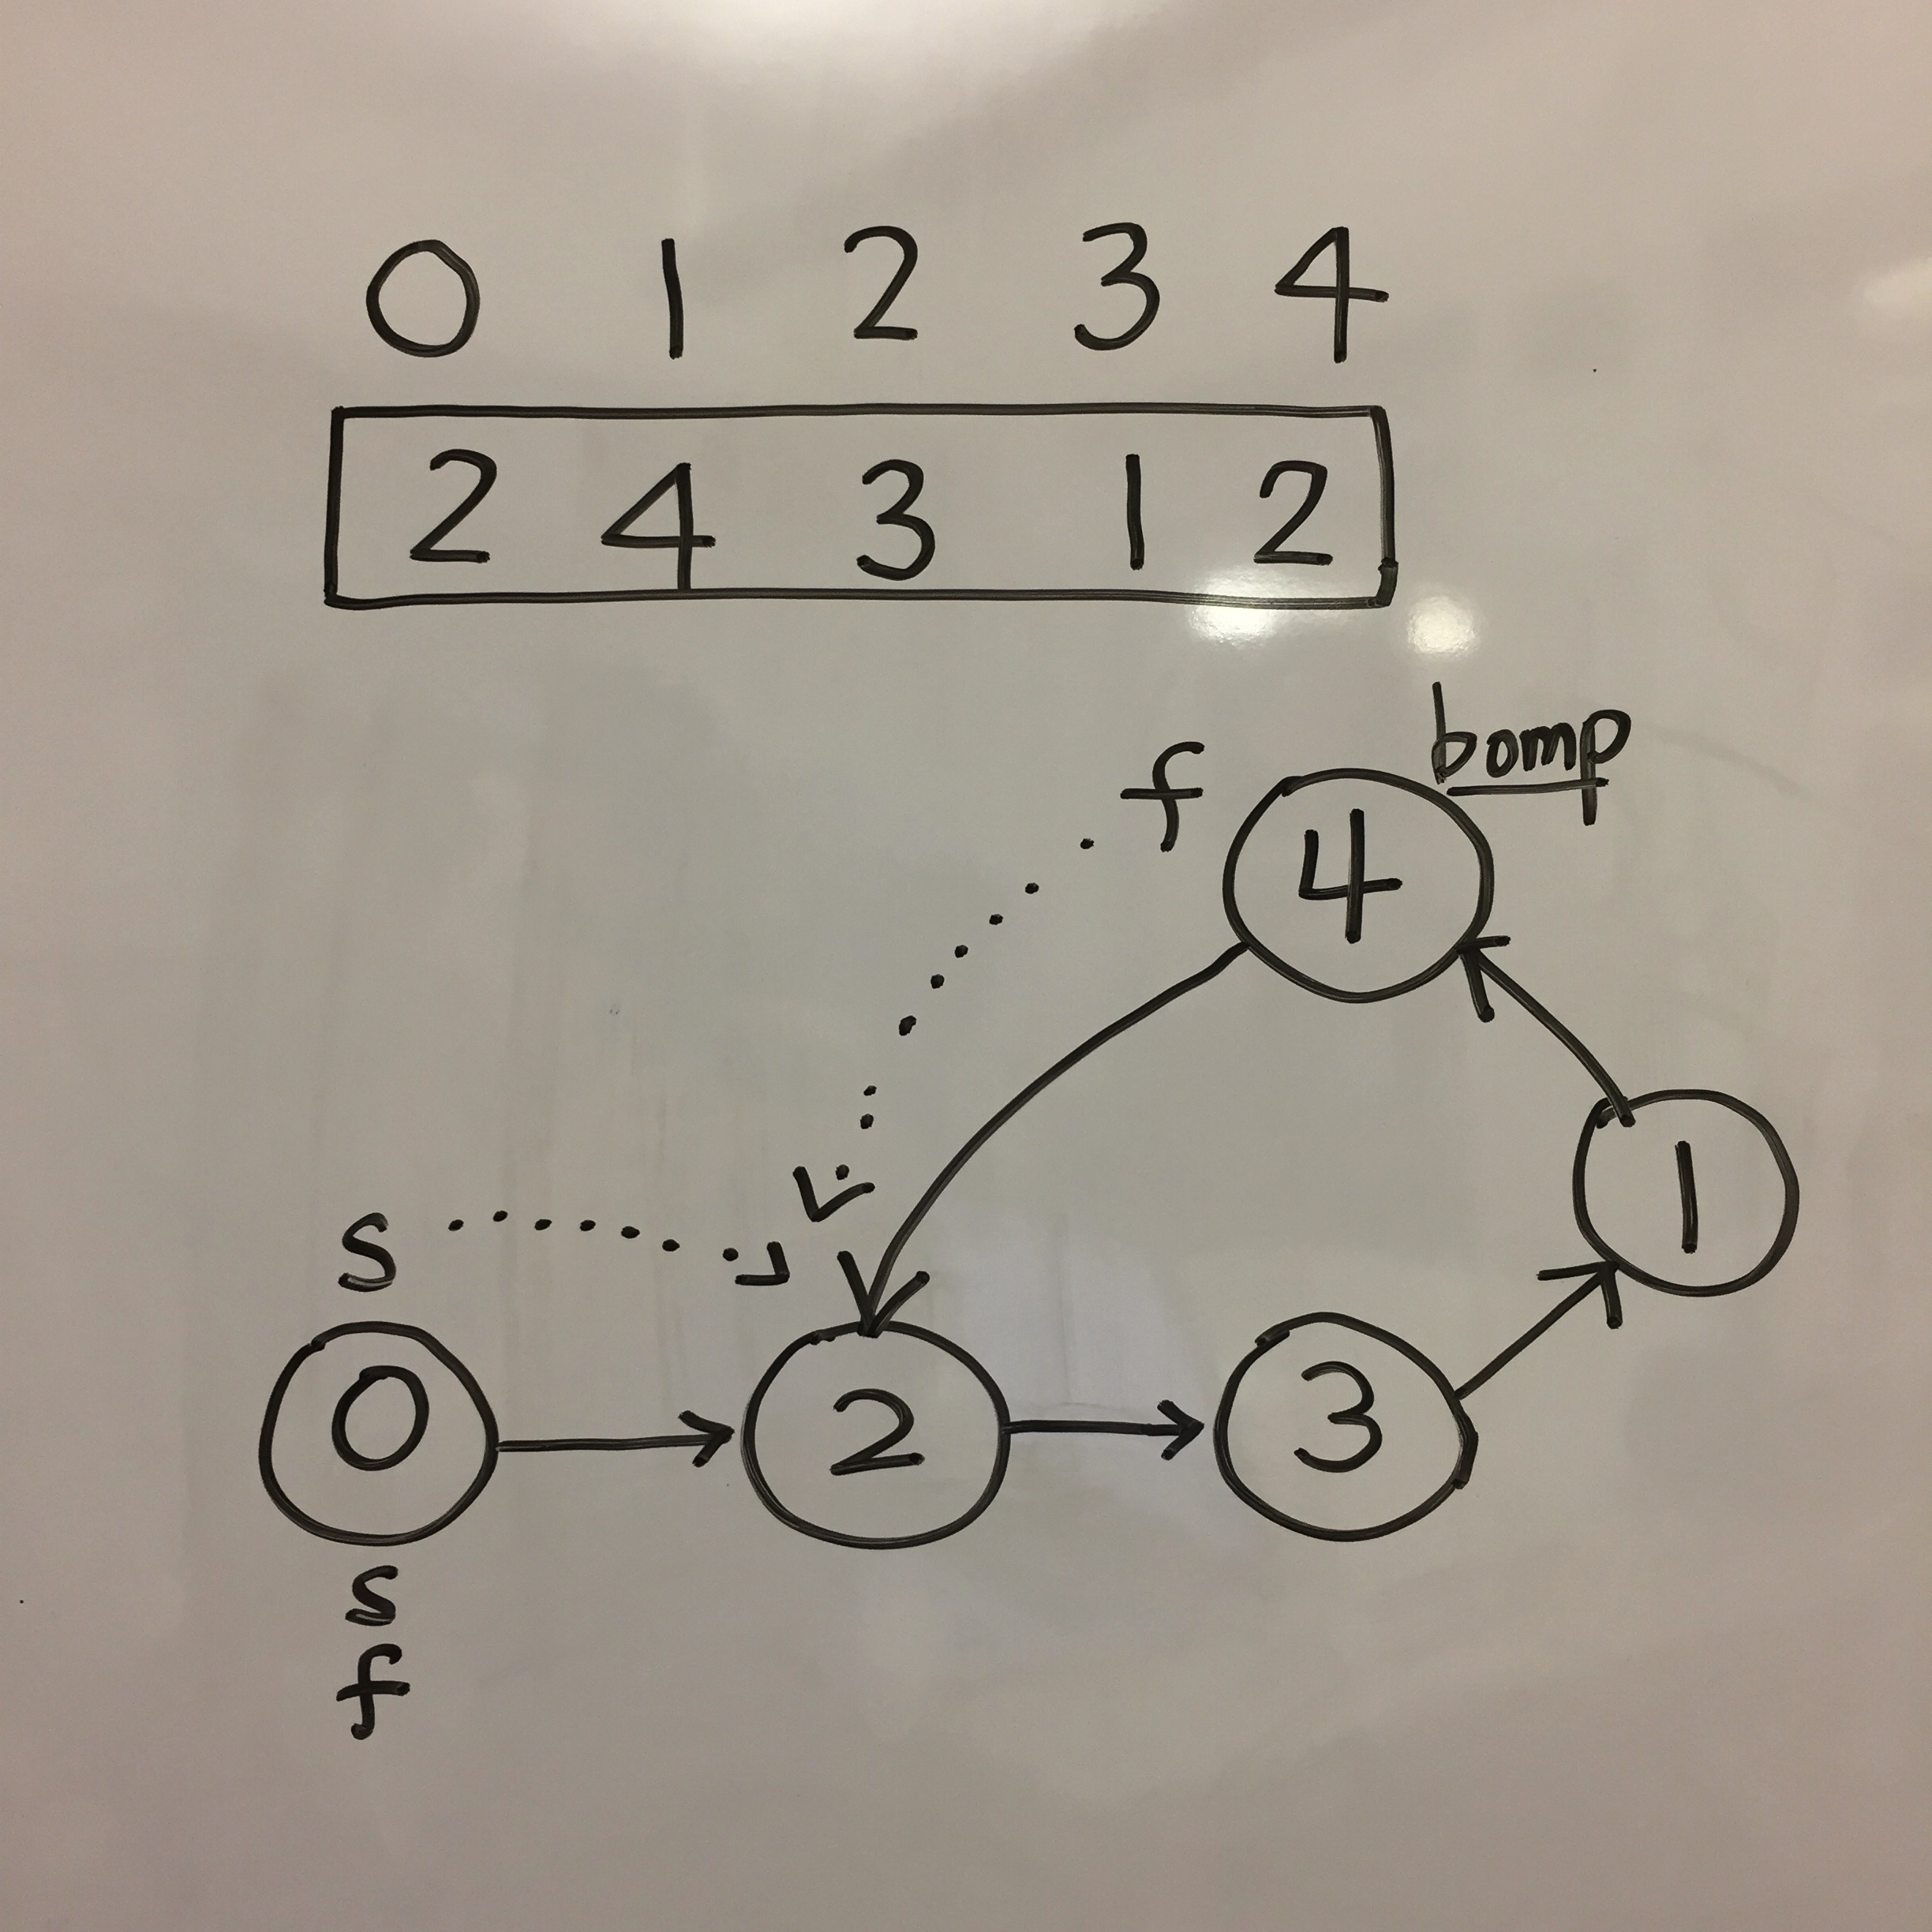 0 1 2 3 4
2 4 3 1 2
bomp
f
4
1
s
0 2 3
s
f